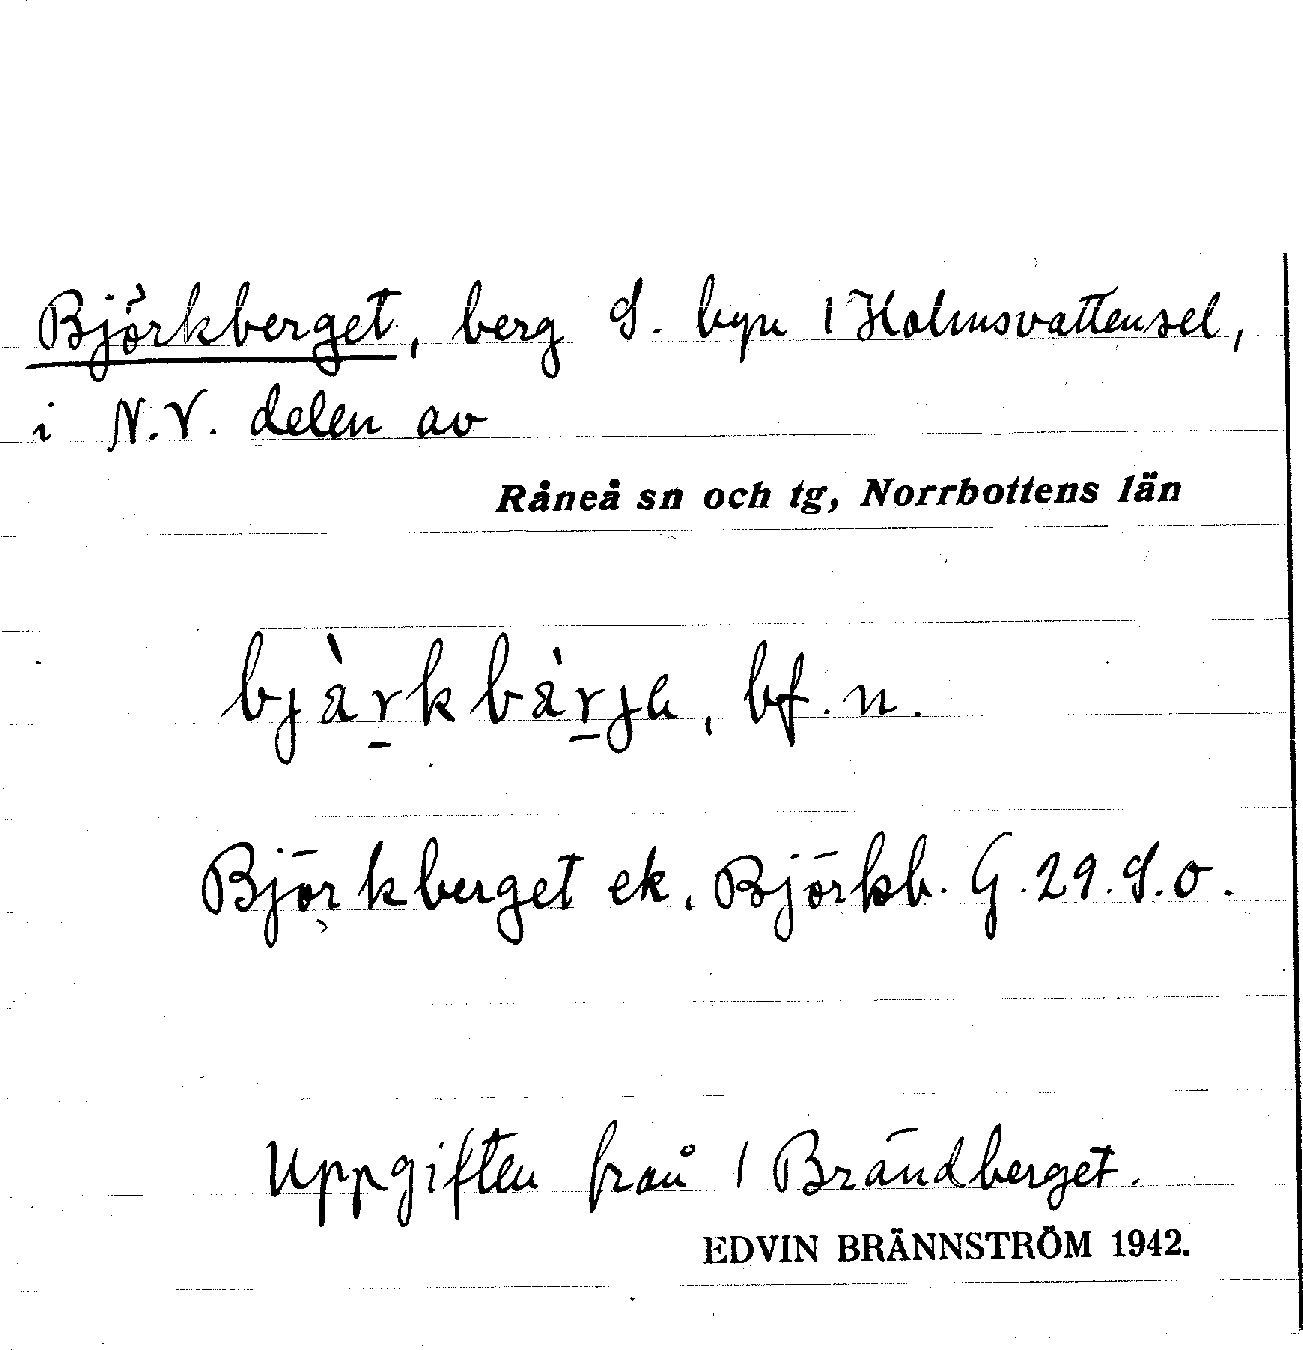 Björkberget, berg S. byn 1 Holmsvattensel,
i N.V. delen av
Råneå sn och tg, Norrbottens län
bjàrkbàrja, bf. n.
Björkberget ek. Björkb. G. 29. S.o.
Uppgiften från 1 Brändberget.
EDVIN BRÄNNSTRÖM 1942.